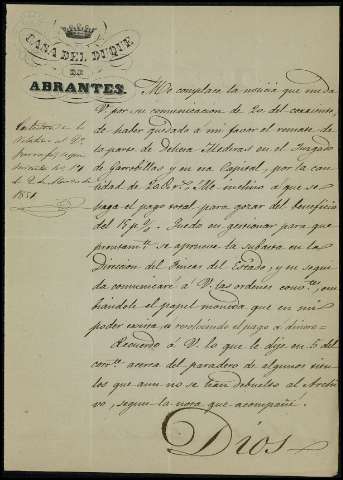 CASA DEL DUQUE
DE
ABRANTES.
Me complace la noticia que me da
V. por su comunicacion de 20 del corriente,
de haber quedado á mi favor el remate de
la parte de Dehesa Medinas en el Juzgado
de Garrobillas y en esa Capital, por la can
tidad de
Me inclino á que se
haga el pago total para gozar del beneficio
del 15 p%. Quedo en gestionar para que
prontamte. se apruebe la subasta en la
Direccion del Fincas del Estado, y en segui
da comunicaré á V. las ordenes convtes., en
biandole el papel moneda que en mi
poder exista, ó realizando el pago á dinero
Recuerdo á V. lo que le dije en 5 del
corrte. acerca del paradero de algunos titu
los que aun no se han debuelto al Archi
vo, segun la nota que acompañé.
Dios